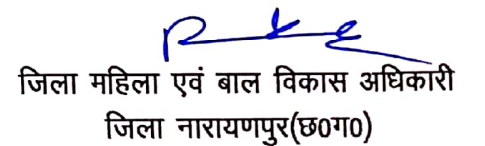 जिला महिला एवं बाल विकास अधिकारी
जिला नारायणपुर(छ0ग0)